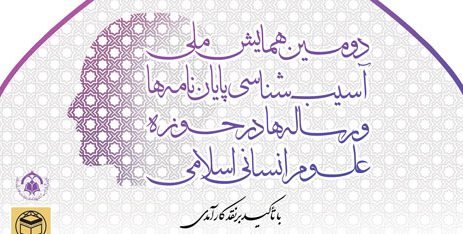 دومین همایش ملی
آسیب شناسی پایان نامه ها
و رساله ها در حوزه
علوم انسانی اسلامی
با تأکید بر نقد کارآمدی